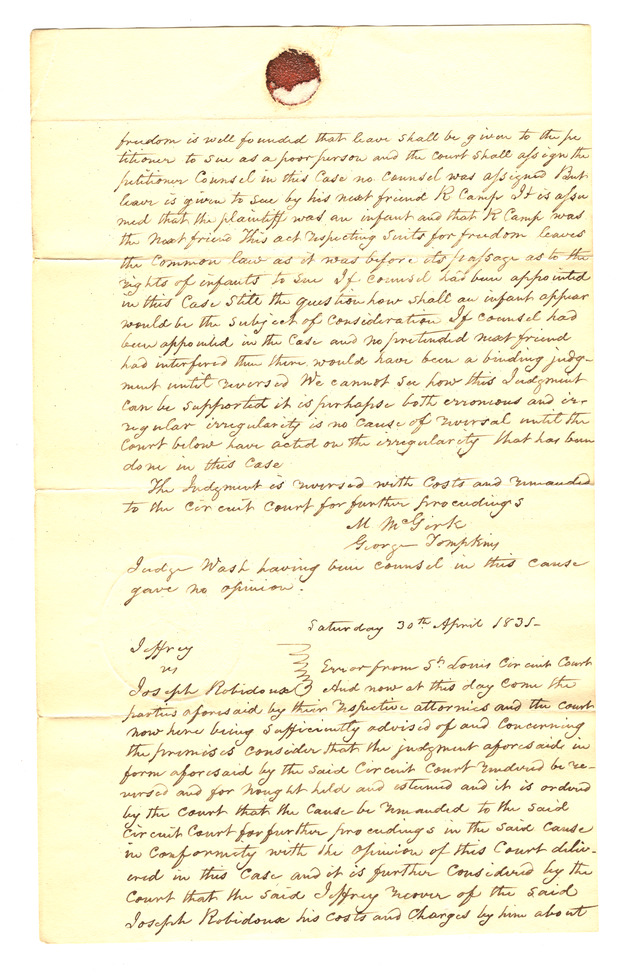 freedom is well founded that leave shall be given to the pe
titioner to sue as a poor person and the court shall assign the
petitioner Counsel in this Case no counsel was assigned But
leave is given to sue by his next friend R Camp It is assu
med that the plaintiff was an infant and that R Camp was
the next friend This act respecting suits for freedom leaves
the Common law as it was before its passage as to the
rights of infants to sue If counsel had been appointed
in this Case still the question how shall an infant appear
would be the subject of consideration If counsel had
been appointed in the Case and no pretended next friend
had interfered then there would have been a binding judg-
ment until reversed We cannot see how this Judgment
can be supported it is perhapse both erronious and ir-
regular irregularity is no cause of reversal until the
Court below have acted on the irregularity that has been
done in this case
The Judgment is reversed with Costs and remanded
to the Circuit Court for further proceedings
M McGirk
George Tompkins
Judge Wash having been counsel in this cause
gave no opinion.
Saturday 30th April 1835-
Jeffrey
vs
Error from St Louis Circuit Court
Joseph Robidoux And now at this day come the
parties aforesaid by their respective attornies and the court
now here being sufficiently advised of and concerning
the premises consider that the judgment aforesaid in
form aforesaid by the said Circuit Court rendered be re-
versed and for nought held and esteemed and it is ordered
by the court that the Cause be remanded to the said
Circuit Court for further proceedings in the said cause
in Conformity with the opinion of this Court deliv-
ered in this Case and it is further Considered by the
Court that the said Jeffrey recover of the said
Joseph Robidoux his costs and Charges by him about